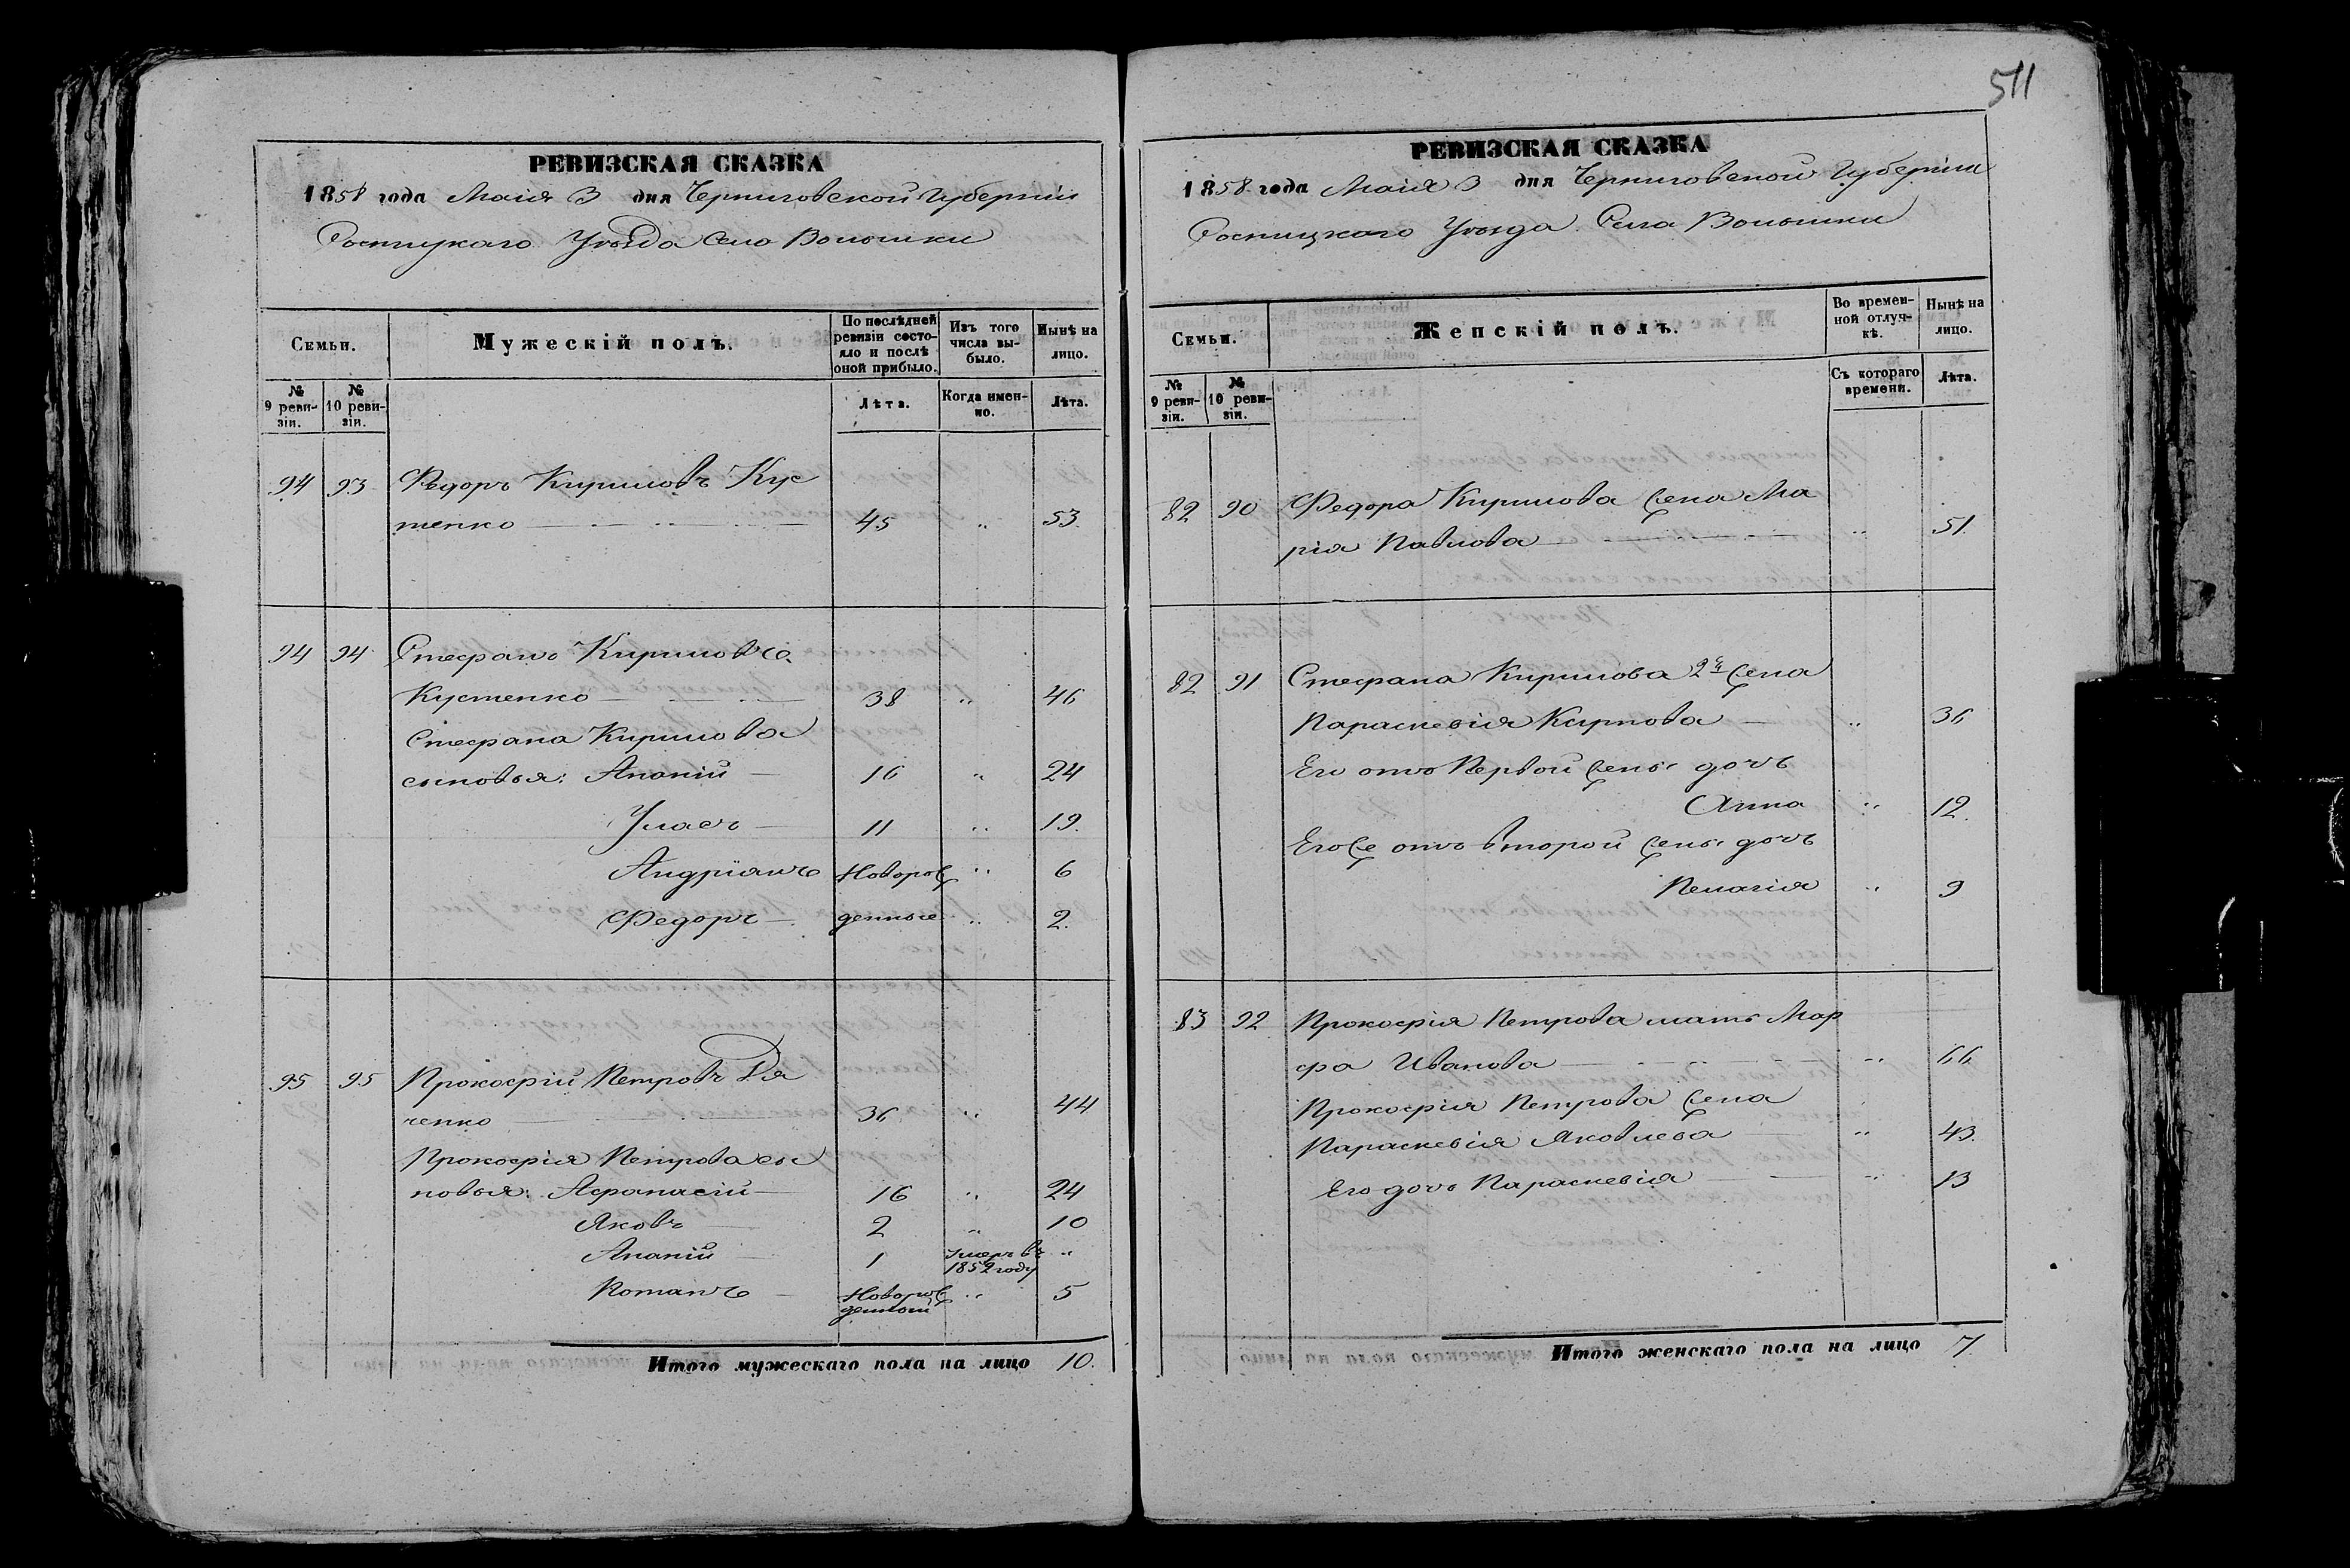 511
РЕВИЗСКАЯ СКАЗКА
1858 года Маія 3 дня Черниговской Губерніи
Сосницкаго Уѣзда Село Волынки
Семьи.
Мужескій полъ.
По послѣдней ревизіи состояло и послѣ оной прибыло.
Изъ того числа выбыло.
Нынѣ на лицо.
№ 9 ревизіи.
№ 10 ревизіи.
Лѣта.
Когда именно.
Лѣта.
94 93 Федоръ Кириловъ Кус
тенко 45 " 53.
94 94 Стефанъ Кириловъ
Кустенко 38 " 46
Стефана Кирилова
сыновья: Ананій 16 " 24
Уласъ 11 " 19.
Андріанъ Новорож " 6
Федоръ денные " 2.
95 95 Прокофій Петровъ Дя
ченко 36 " 44
Прокофія Петрова сы
новья: Афанасій 16 " 24
Яковъ 2 " 10
Ананій 1 Умеръ въ 1852 году "
Романъ Новорожденный " 5
Итого мужескаго пола на лицо 10.
РЕВИЗСКАЯ СКАЗКА
1858 года Маія 3 дня Черниговской Губерніи
Сосницкаго Уѣзда Села Волынки
Семьи.
Женскій полъ.
Во временной отлучкѣ.
Нынѣ на лицо.
№ 9 ревизіи.
№ 10 ревизіи.
Съ котораго времени.
Лѣта.
82 90 Федора Кирилова жена Ма
рія Павлова " 51.
82 91 Стефана Кирилова 2я жена
Параскевія Карпова " 36
Его отъ Первой жены дочь
Анна " 12.
Его же отъ второй жены дочь
Пелагія " 9
83 92 Прокофія Петрова мать Мар
фа Иванова " 66
Прокофія Петрова жена
Параскевія Яковлева " 43.
Его дочь Параскевія " 13
Итого женскаго пола на лицо 7